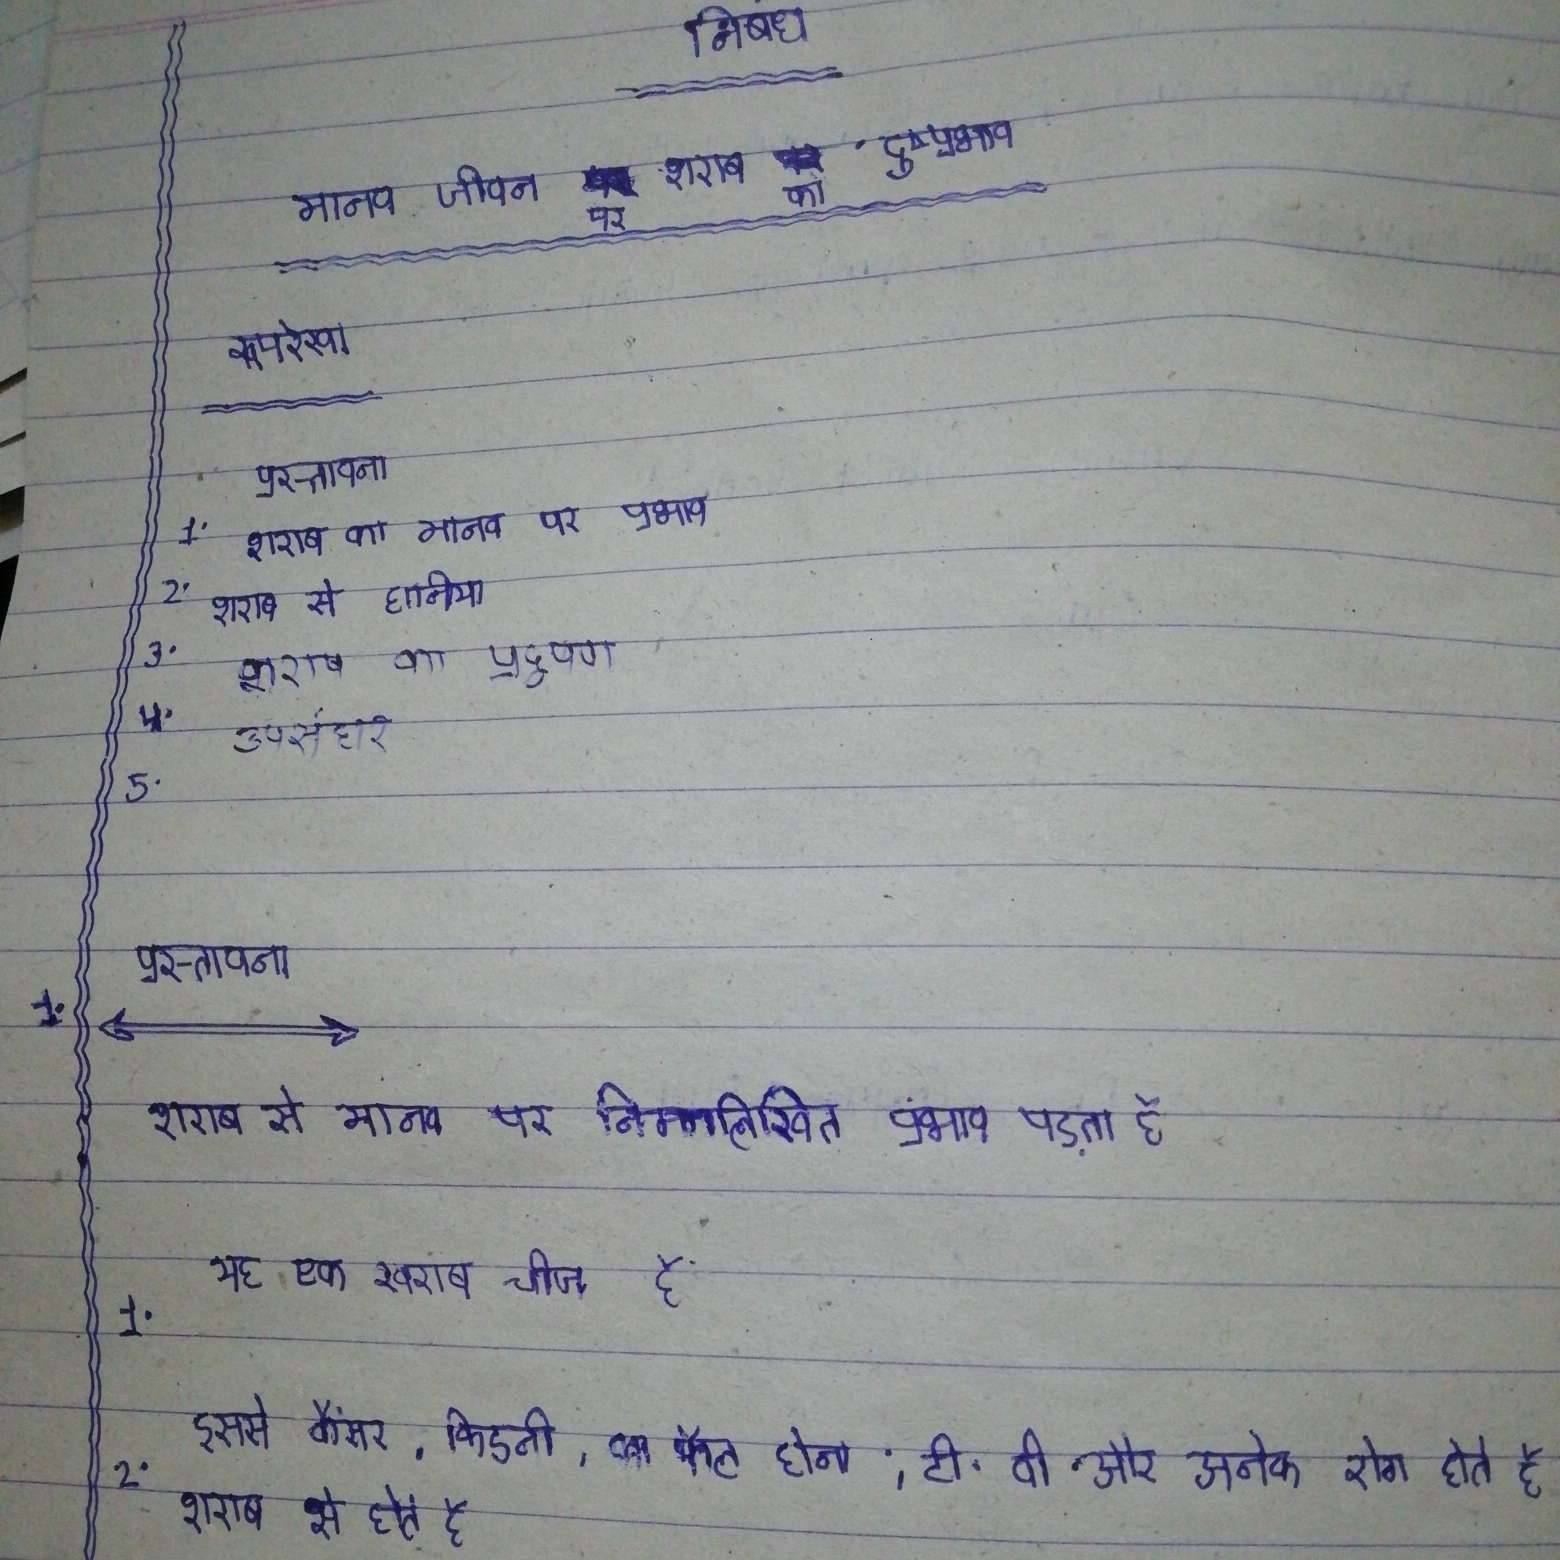 निबंध
मानव जीवन पर शराब का दुष्प्रभाव
रूपरेखा
प्रस्तावना
1. शराब का मानव पर प्रभाव
2. शराब से हानिया
3. शराब का प्रदुषण
4. उपसंहार
5.
प्रस्तावना
1.
शराब से मानव पर निम्नलिखित प्रभाव पड़ता है
यह एक खराब चीज है
1.
इससे कैंसर, किडनी, का फैल होना, टी. वी और अनेक रोग होते है
2. शराब से होते है